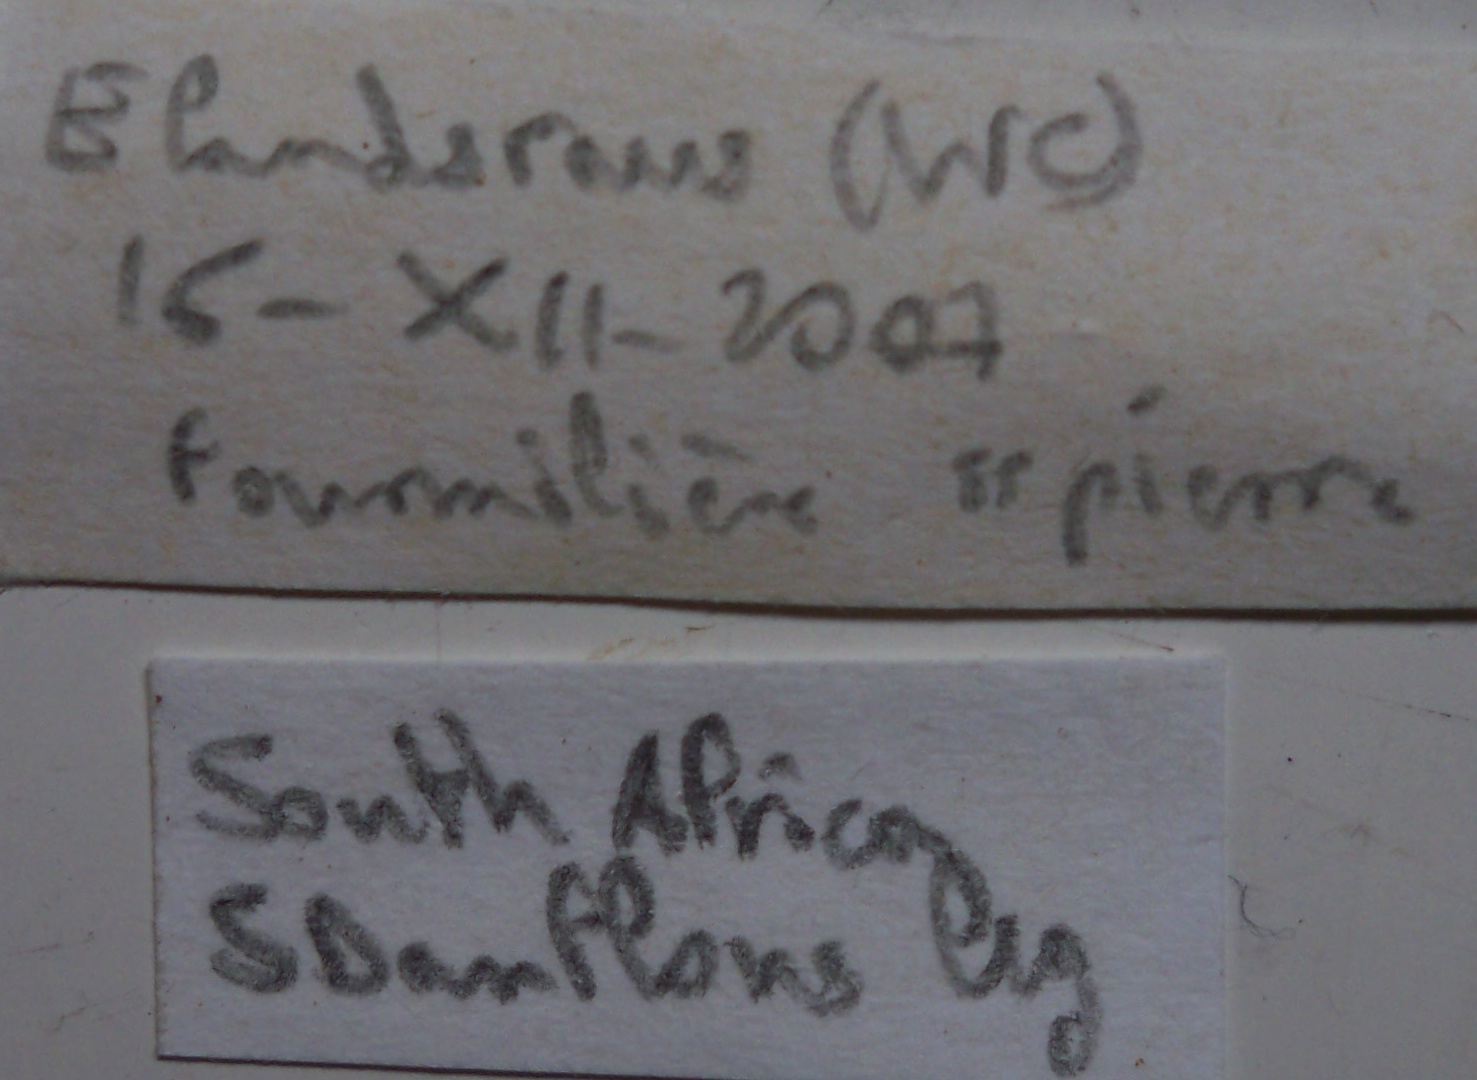 Elandsrous (WC)
16-XII-2007
fourmilière ss pierre
South Africa
S Danflous leg